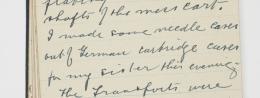 shafts of the mess cart.
I made some needle cases
out of German cartridge cases
for my sister this evening.
The Frankforts were